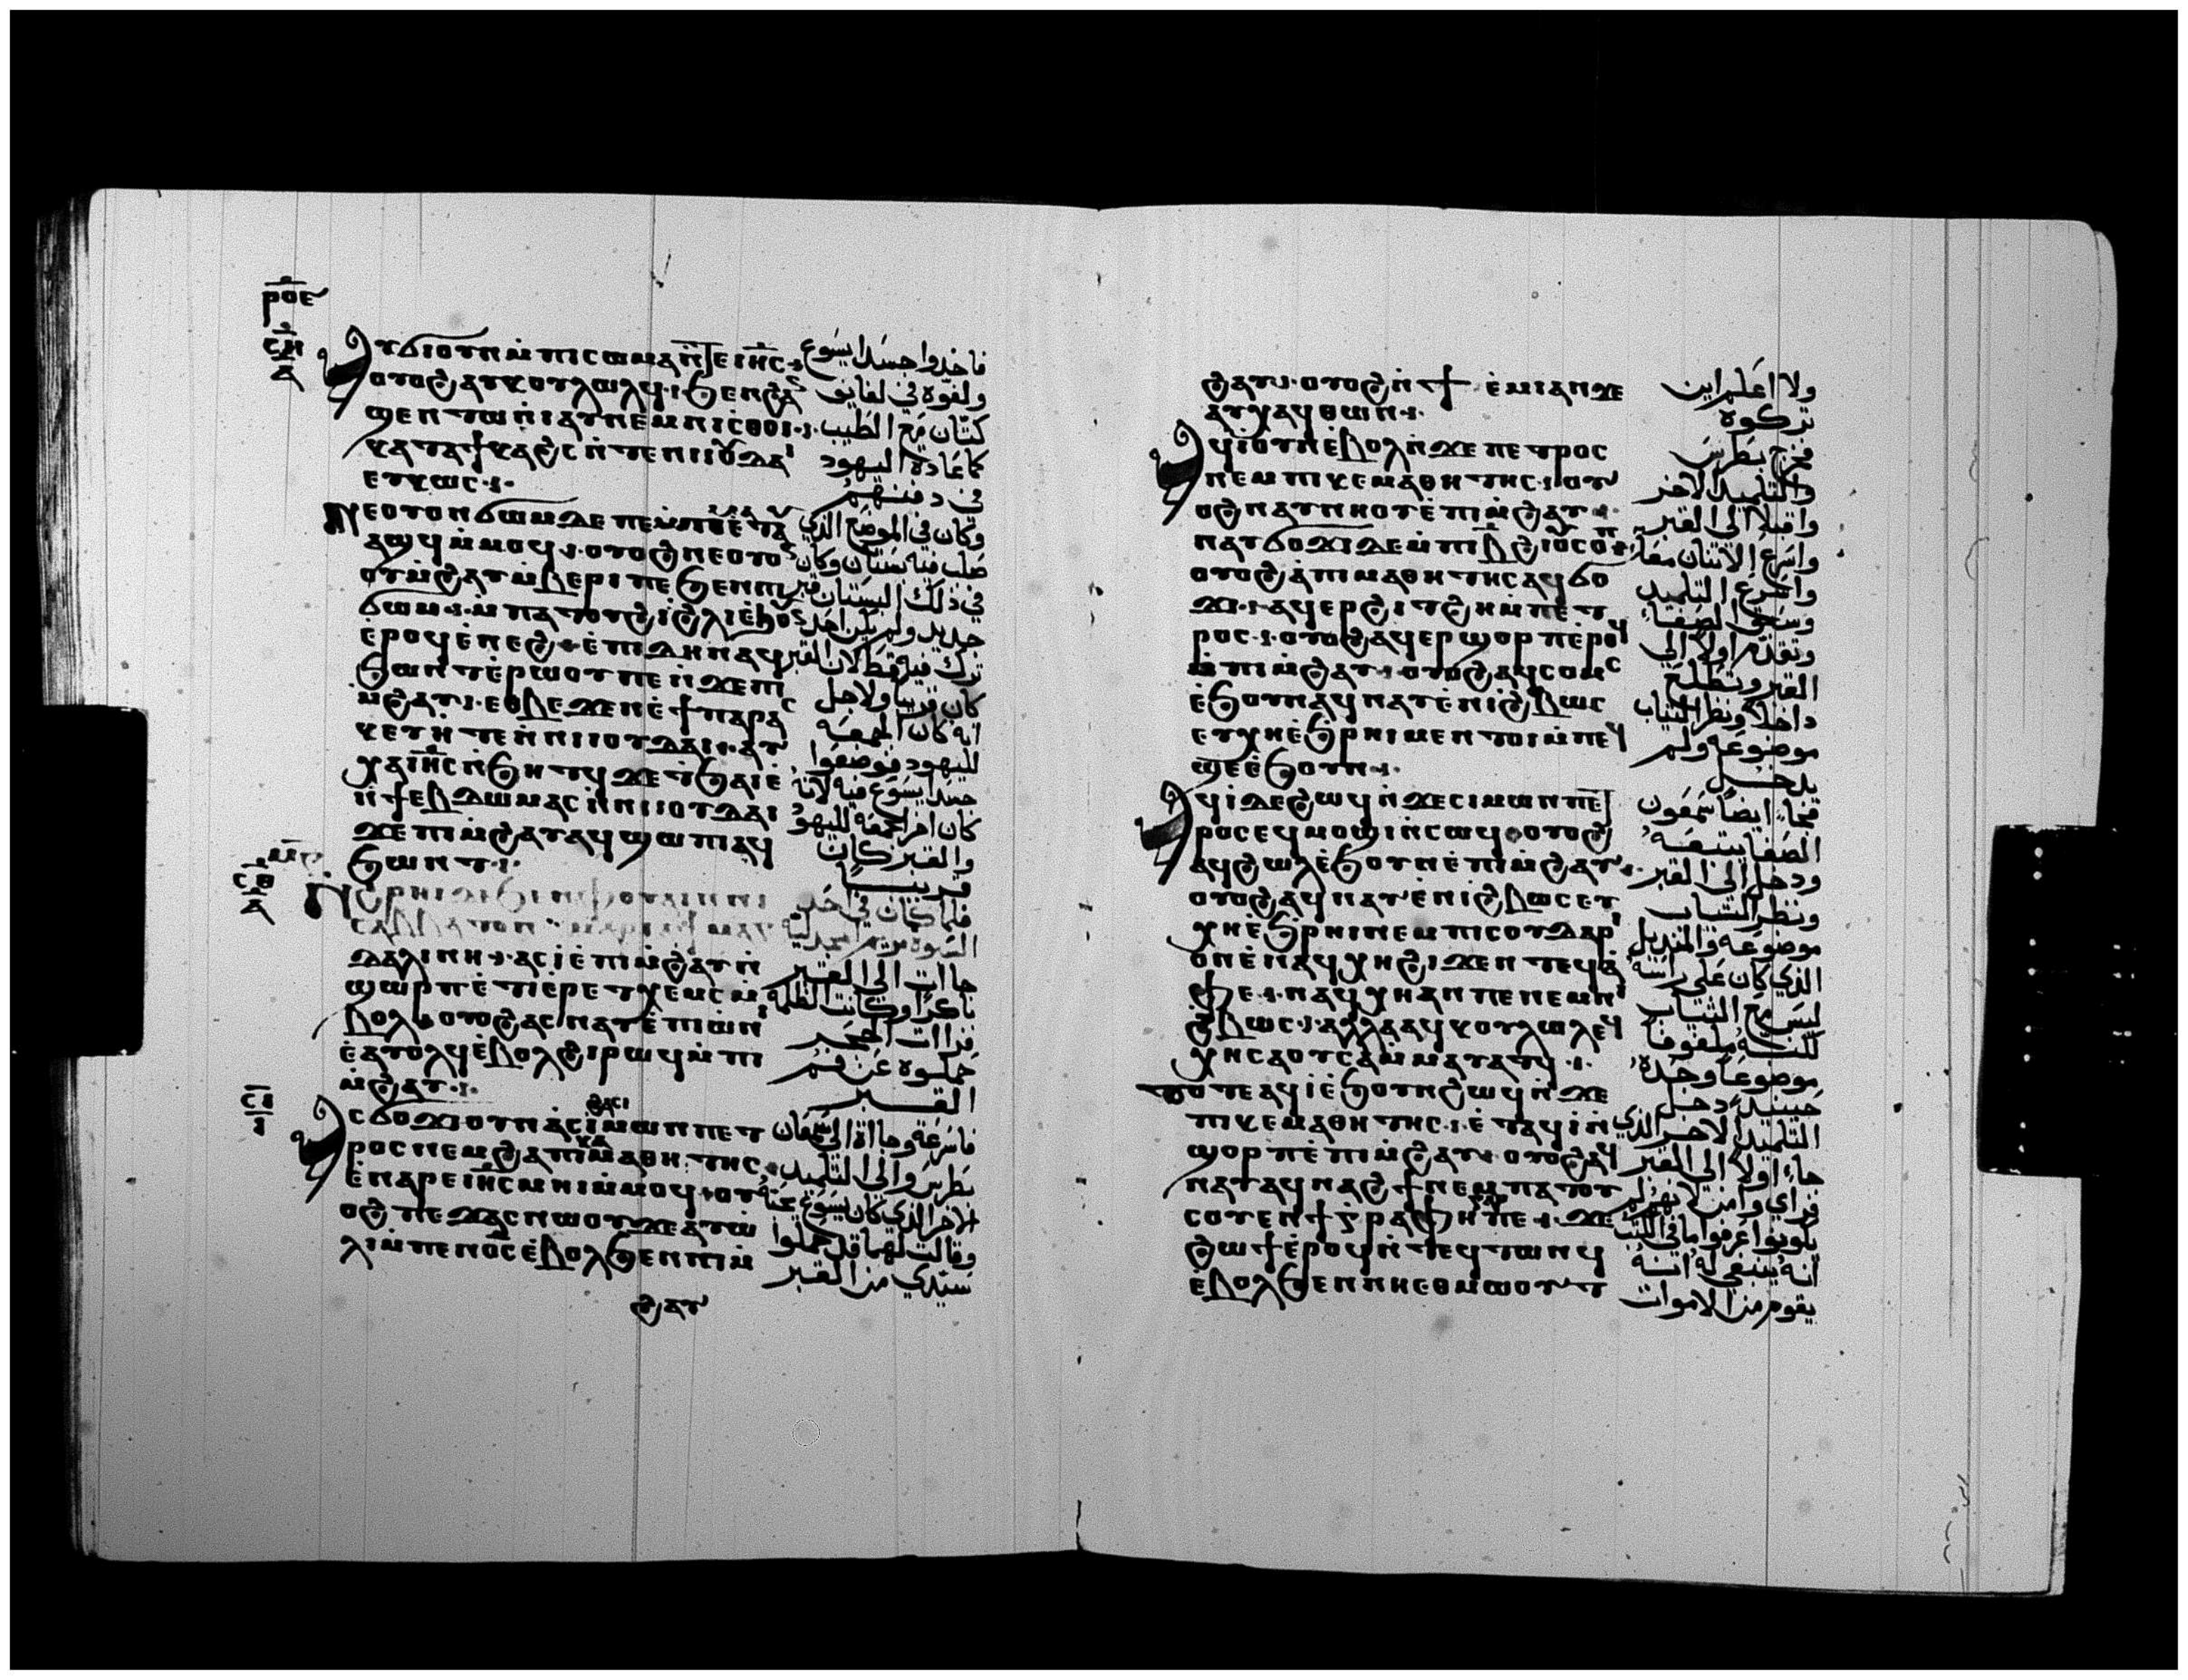 ⲣⲟⲉ
ⲥⲏ
ⲇ
ⲁⲩϭⲓⲟⲩⲛⲙ̀ⲡⲓⲥⲱⲙⲁⲛ̀ⲧⲉⲓⲏ̅ⲥ̅·
ⲟⲩⲟϩⲁⲩⲕⲟⲩⲗⲱⲗϥ·ϧⲉⲛϩⲁⲛ
ϣⲉⲛⲧⲱⲛⲓⲁⲩⲛⲉⲙⲛⲓⲥⲑⲟⲓ·
ⲕⲁⲧⲁϯⲕⲁϩⲥⲛ̀ⲧⲉⲛⲓⲓⲟⲩⲇⲁⲓ
ⲉⲧⲕⲱⲥ·
ⲛⲉⲟⲩⲟⲛϭⲱⲙⲇⲉⲡⲉⲙ̀ⲡⲓⲙⲁⲉⲧⲁ
ⲁϣϥⲙ̀ⲙⲟϥ·ⲟⲩⲟϩⲛⲉⲟⲩⲟⲛ
ⲟⲩⲙ̀ϩⲁⲩⲙ̀ⲃⲉⲣⲓⲡⲉϧⲉⲛⲡⲓ
ϭⲱⲙ·ⲙ̀ⲡⲁⲧⲟⲩϩⲓϩⲗⲓⲉϧⲟⲩⲛ
ⲉ̀ⲣⲟϥⲉ̀ⲛⲉϩ·ⲉ̀ⲡⲓⲇⲏⲛⲁϥ
ϧⲱⲛⲧⲉ̀ⲣⲱⲟⲩⲡⲉⲛ̀ϫⲉⲡⲓ
ⲙ̀ϩⲁⲩ·ⲉⲑⲃⲉϫⲉⲛⲉ̀ϯⲡⲁⲣⲁⲥ
ⲕⲉⲩⲏ̀ⲧⲉⲛ̀ⲛⲓⲓⲟⲩⲇⲁⲓ·ⲁⲩ
ⲭⲁⲓⲏ̅ⲥ̅ⲛ̀ϧⲏⲧϥϫⲉⲧϧⲁⲓⲉ̀
ⲛ̀ϯⲉⲃⲇⲱⲙⲁⲥⲛ̀ⲛⲓⲓⲟⲩⲇⲁⲓ
ϫⲉⲡⲓⲙ̀ϩⲁⲩⲁϥϣⲱⲡⲓⲁϥ
ϧⲱⲛⲧ·
ⲥⲑ
ⲇ
ϧⲣⲏⲓⲇⲉϧⲉⲛⲫⲟⲩⲁⲓⲛ̀ⲛⲓ
ⲥⲁⲃⲃⲁⲧⲟⲛ·ⲙⲁⲣⲓⲁϯⲙⲁⲅ
ⲇⲁⲗⲓⲛⲏ·ⲁⲥⲓ̀ⲉ̀ⲡⲓⲙ̀ϩⲁⲩⲛ̀
ϣⲱⲣⲡⲉ̀ⲧⲓⲉ̀ⲣⲉⲧⲭⲉⲙⲥⲙ̀
ⲃⲟⲗ·ⲟⲩⲟϩⲁⲥⲛⲁⲩⲉ̀ⲡⲓⲱ̀ⲛⲓ
ⲉ̀ⲁⲩⲟⲗϥⲉ̀ⲃⲟⲗϩⲓⲣⲱϥⲙ̀ⲡⲓ
ⲙ̀ϩⲁⲩ·
ⲥⲓ
ⲓ
ⲁⲥϭⲟϫⲓⲟⲩⲛⲁⲥⲓ̀ϩⲁⲥⲓⲙⲱⲛⲡⲉⲧ
ⲣⲟⲥⲛⲉⲙϩⲁⲡⲓⲕⲉⲙⲁⲑⲏⲧⲏⲥ·
ⲉ̀ⲛⲁⲣⲉⲓⲏ̅ⲥ̅ⲙⲉⲓⲙ̀ⲙⲟϥ·ⲟⲩ
ⲟϩⲡⲉϫⲁⲥⲛⲱⲟⲩϫⲉⲁⲩⲱ
ⲗⲓⲙ̀ⲡⲉⲛⲟ̅ⲥ̅ⲉ̀ⲃⲟⲗϧⲉⲛⲡⲓⲙ̀
ϩⲁⲩ
فاخدوا جسد ايسوع
ولفوه في لفايف
كتان مع الطيب
كما عادة اليهود
في دفنهم
وكان في الموضع الذي
صلب فيه بستان وكان
في ذلك البستان قبر
جديد ولم يكن احد
ترك فيه قط لان القبر
كان قريبا ولاجل
انه كان الجمعه
لليهود فوضعوا
جسد ايسوع فيه لانه
كان اخر الجمعه لليهود
والقبر كان
قريبا
فلما كان في احد
السبوة مريم المجدلية
جاات الى القبر
باكرا وكانت الظلمة
فراات الحجر
حملوه عن فم
القبر
فاسرعة وجاأة الى سمعان
بطرس والى التلميد
الاخر الذي كان يسوع
وقالت لهما قد حملوا
سيدي من القبر
ϩⲁⲩ·ⲟⲩⲟϩⲛ̀ϯⲉ̀ⲙⲓⲁⲛϫⲉ
ⲁⲩⲭⲁϥⲑⲱⲛ·
ⲁϥⲓ̀ⲟⲩⲛⲉ̀ⲃⲟⲗⲛ̀ϫⲉⲡⲉⲧⲣⲟⲥ
ⲛⲉⲙⲡⲓⲕⲉⲙⲁⲑⲏⲧⲏⲥ·ⲟⲩ
ⲟϩⲛⲁⲩⲛⲏⲟⲩⲉ̀ⲡⲓⲙ̀ϩⲁⲩ·
ⲛⲁⲩϭⲟϫⲓⲇⲉⲙ̀ⲡⲓⲃ̅ϩⲓⲟⲩⲥⲟⲡ
ⲟⲩⲟϩⲁ̀ⲡⲓⲙⲁⲑⲏⲧⲏⲥⲁϥϭⲟ
ϫⲓ·ⲁϥⲉⲣϩⲓⲧϩⲏⲙ̀ⲡⲉⲧ
ⲣⲟⲥ·ⲟⲩⲟϩⲁϥⲉⲣϣⲟⲣⲡⲉ̀ⲣⲟϥ
ⲙ̀ⲡⲓⲙ̀ϩⲁⲩ·ⲟⲩⲟϩⲁϥⲥⲟⲙⲥ
ⲉ̀ϧⲟⲩⲛⲁϥⲛⲁⲩⲉ̀ⲛⲓϩⲃⲱⲥ
ⲉⲩⲭⲏⲉ̀ϧⲣⲏⲓⲙⲉⲛⲧⲟⲓⲙ̀ⲡⲉϥ
ϣⲉⲉ̀ϧⲟⲩⲛ·
ⲁϥⲓ̀ⲇⲉϩⲱϥⲛ̀ϫⲉⲥⲓⲙⲱⲛⲡⲉⲧ
ⲣⲟⲥⲉϥⲙⲟϣⲓⲛ̀ⲥⲱϥ·ⲟⲩⲟϩ
ⲁϥϩⲱⲗⲉ̀ϧⲟⲩⲛⲉ̀ⲡⲓⲙ̀ϩⲁⲩ·
ⲟⲩⲟϩⲁϥⲛⲁⲩⲉ̀ⲛⲓϩⲃⲱⲥⲉⲩ
ⲭⲏⲉ̀ϧⲣⲏⲓⲛⲉⲙⲡⲓⲥⲟⲩⲇⲁⲣⲓ
ⲟⲛⲉ̀ⲛⲁϥⲭⲏϩⲓϫⲉⲛⲧⲉϥⲁ̀
ⲫⲉ·ⲛⲁϥⲭⲏⲁⲛⲡⲉⲛⲉⲙⲛⲓ
ϩⲃⲱⲥ·ⲁⲗⲗⲁⲁϥⲕⲟⲩⲗⲱⲗⲉϥ
ⲭⲏⲥⲁⲟⲩⲥⲁⲙ̀ⲙⲁⲩⲁⲧϥ·
ⲧⲟⲧⲉⲁϥⲓ̀ⲉ̀ϧⲟⲩⲛϩⲱϥⲛ̀ϫⲉ
ⲡⲓⲕⲉⲙⲁⲑⲏⲧⲏⲥ·ⲉ̀ⲧⲁϥⲓ̀ⲛ̀
ϣⲟⲣⲡⲉ̀ⲡⲓⲙ̀ϩⲁⲩ·ⲟⲩⲟϩⲁϥ
ⲛⲁⲩⲁϥⲛⲁϩϯⲛⲉⲙⲡⲁⲧⲟⲩ
ⲥⲟⲩⲉⲛϯⲅⲣⲁⲫⲏⲅⲁⲣⲡⲉ·ϫⲉ
ϩⲱϯⲉ̀ⲣⲟϥⲛ̀ⲧⲉϥⲧⲱⲛϥ
ⲉ̀ⲃⲟⲗϧⲉⲛⲛⲏⲉⲑⲙⲱⲟⲩⲧ
ولا اعلم اين
تركوه
فخرج بطرس
والتلميد الاخر
واقبلا الى القبر
واسرع الاتنان معا
واسرع التلميد
وسبق الصفا
وتقدم اولا الى
القبر وتطلع
داخلا ونظر التياب
موضوعه ولم
يدخل
فجاء ايضا سمعون
الصفا يتبعه
ودخل الى القبر
ونظر التياب
موضوعه والمنديل
الذي كان على راسه
ليس مع التياب
لكنه ملفوفا
موضوعا وحده
حينيد دخل
التلميد الاخر الذي
جاء اولا الى القبر
فراي وامن لانهم لم
يكونوا عرفوا ما في الكتب
انه ينبغي له انه
يقوم من الاموات